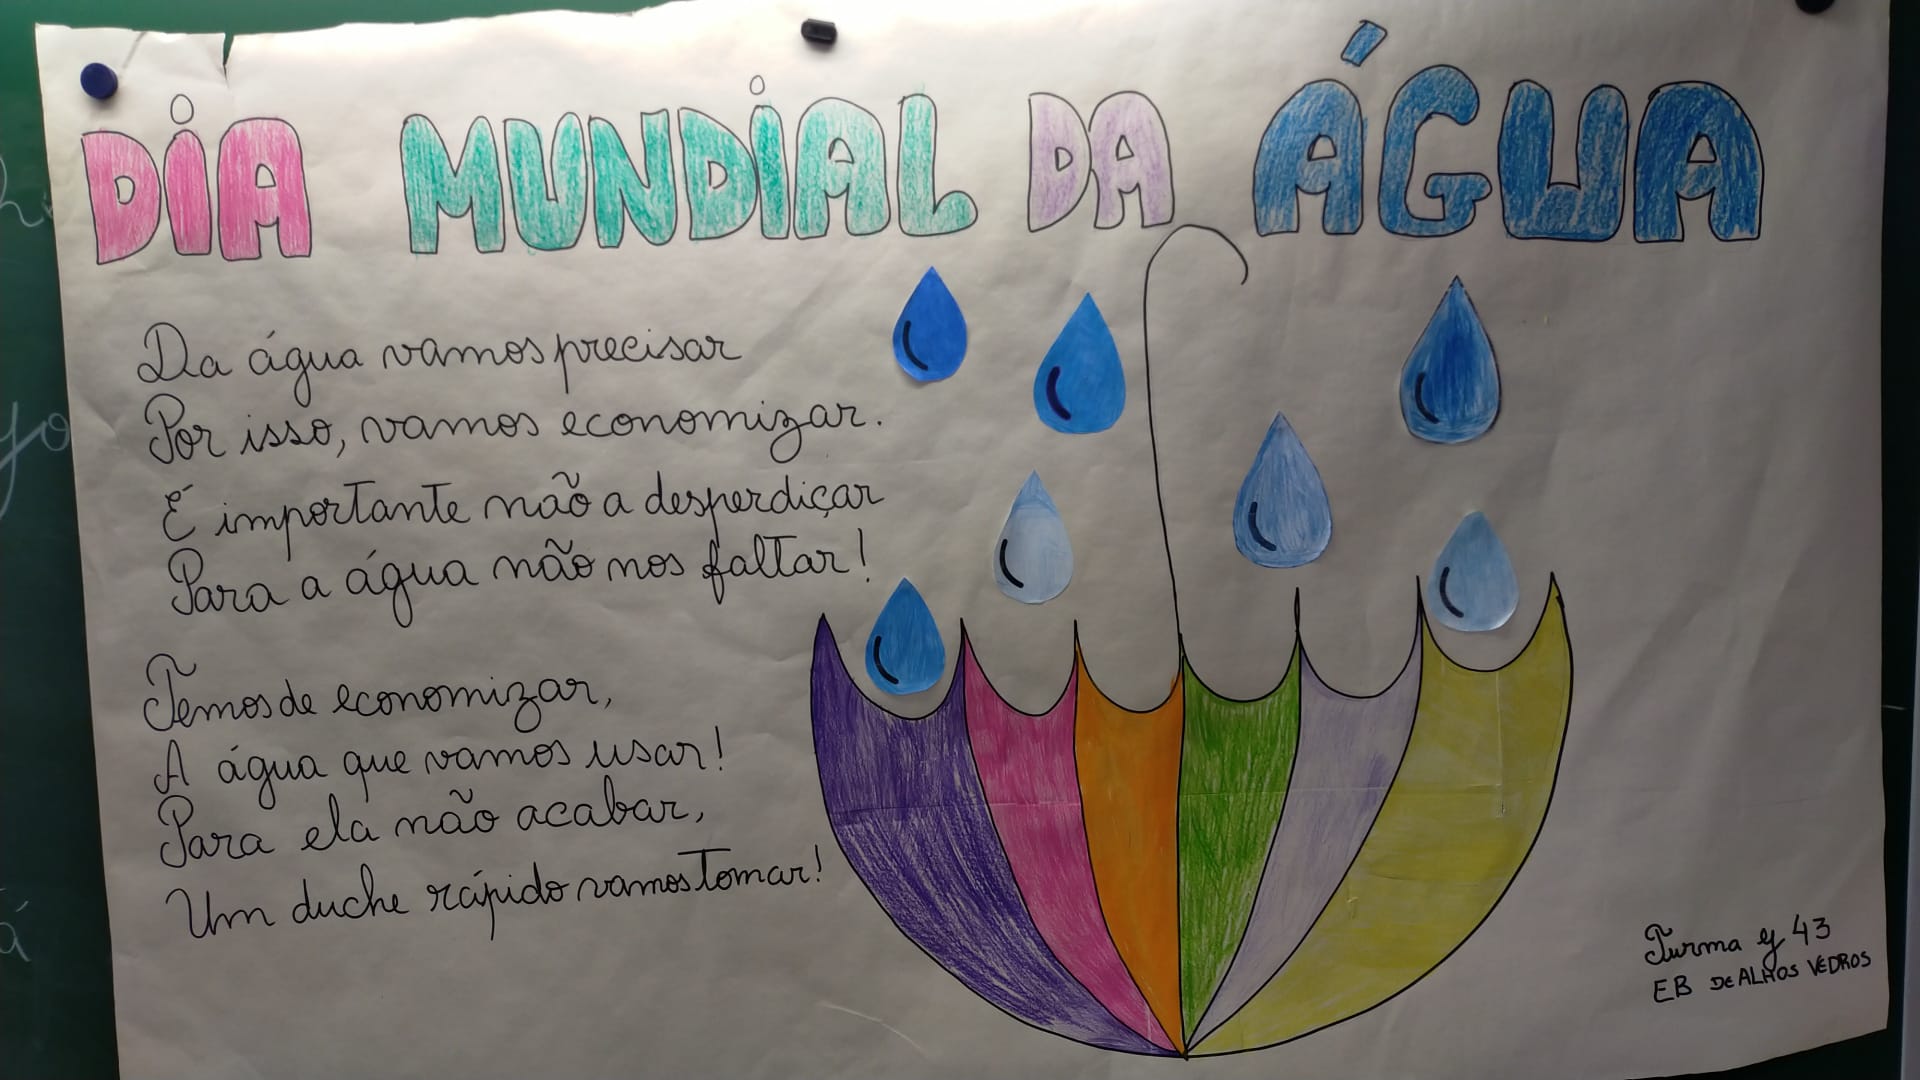 DIA MUNDIAL DA ÁGUA
Da água vamos precisar
Por isso, vamos economizar.
É importante não a desperdiçar
Para a água não nos faltar!
Temos de economizar,
A água que vamos usar!
Para ela não acabar,
Um duche rápido vamos tomar!
Turma y 43
EB DE ALHOS VEDROS